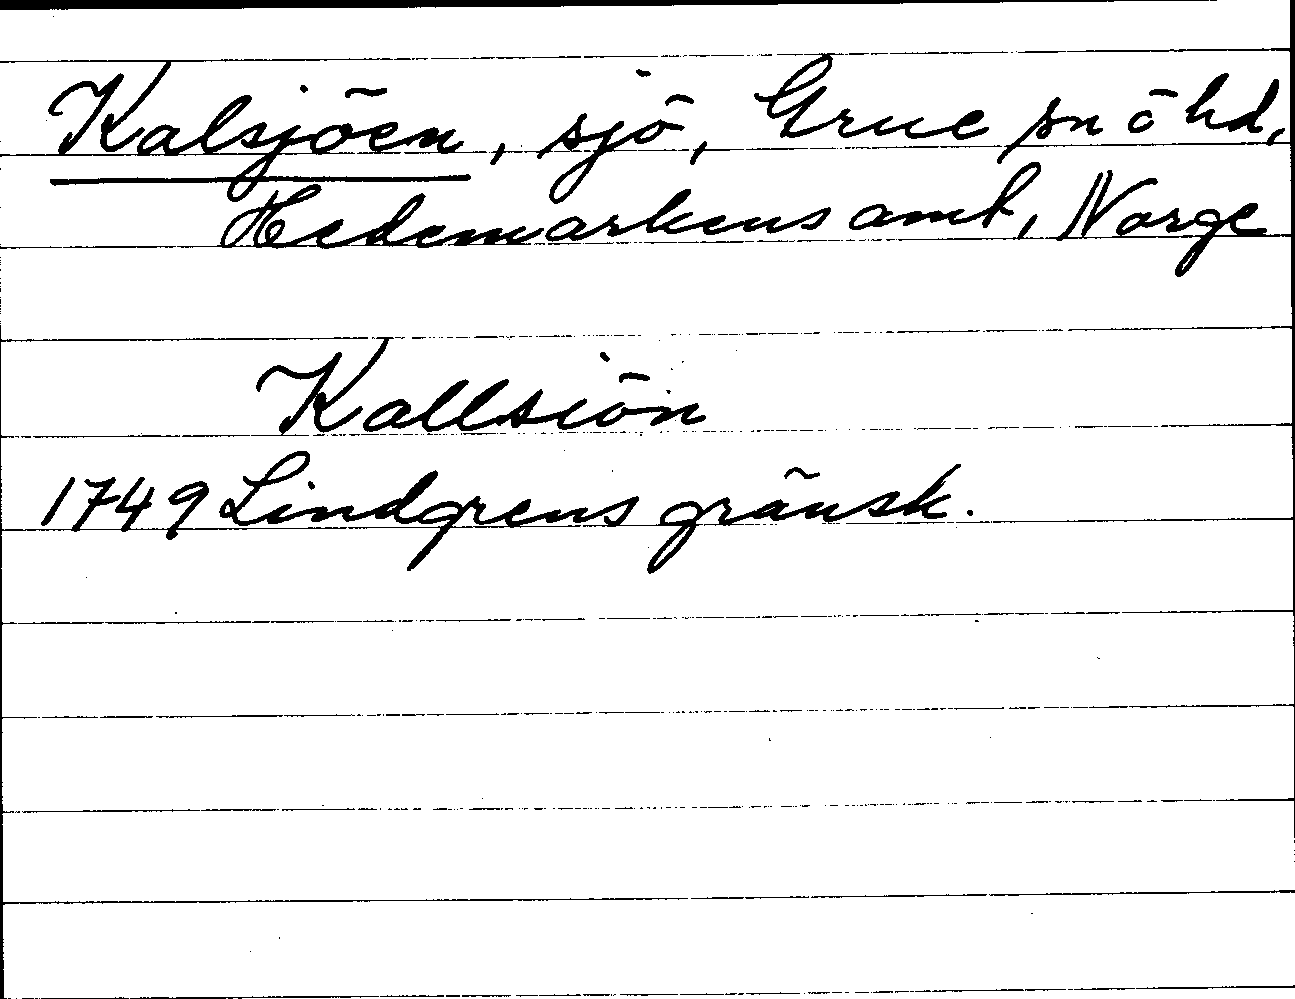 Kalsjöen, sjö, Grue sn ö hd,
Hedemarkens amt, Norge
Kallsiön
1749 Lindgrens gränsk.